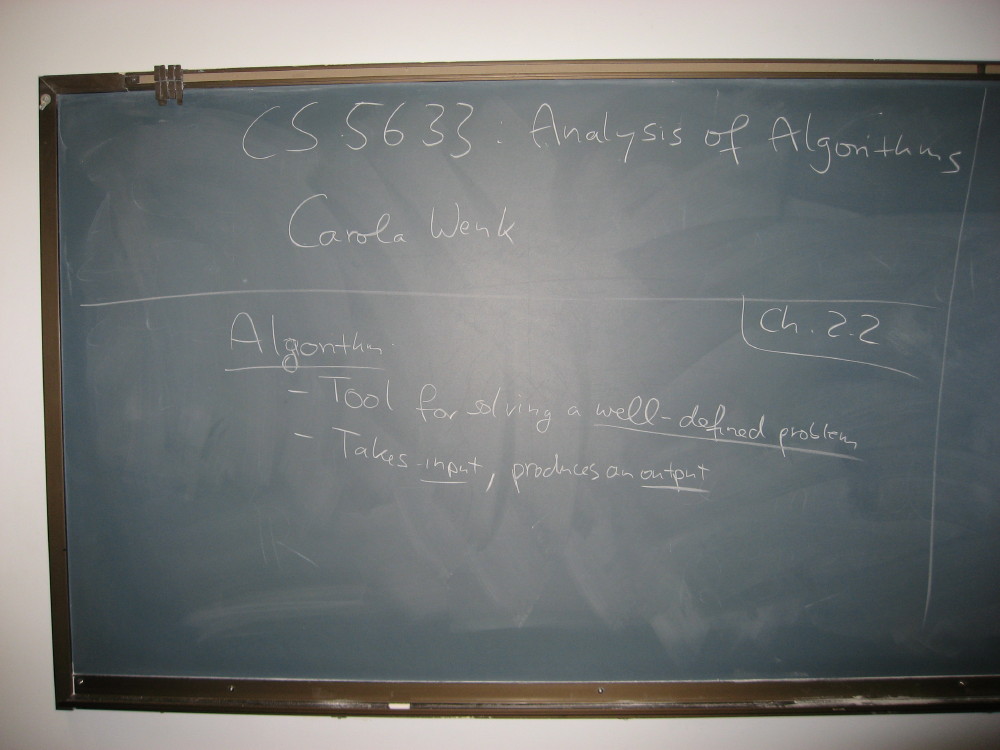 CS 5633: Analysis of Algorithms
Carola Wenk
Ch. 2.2
Algorithm
- Tool for solving a well-defined problem
- Takes input, produces an output